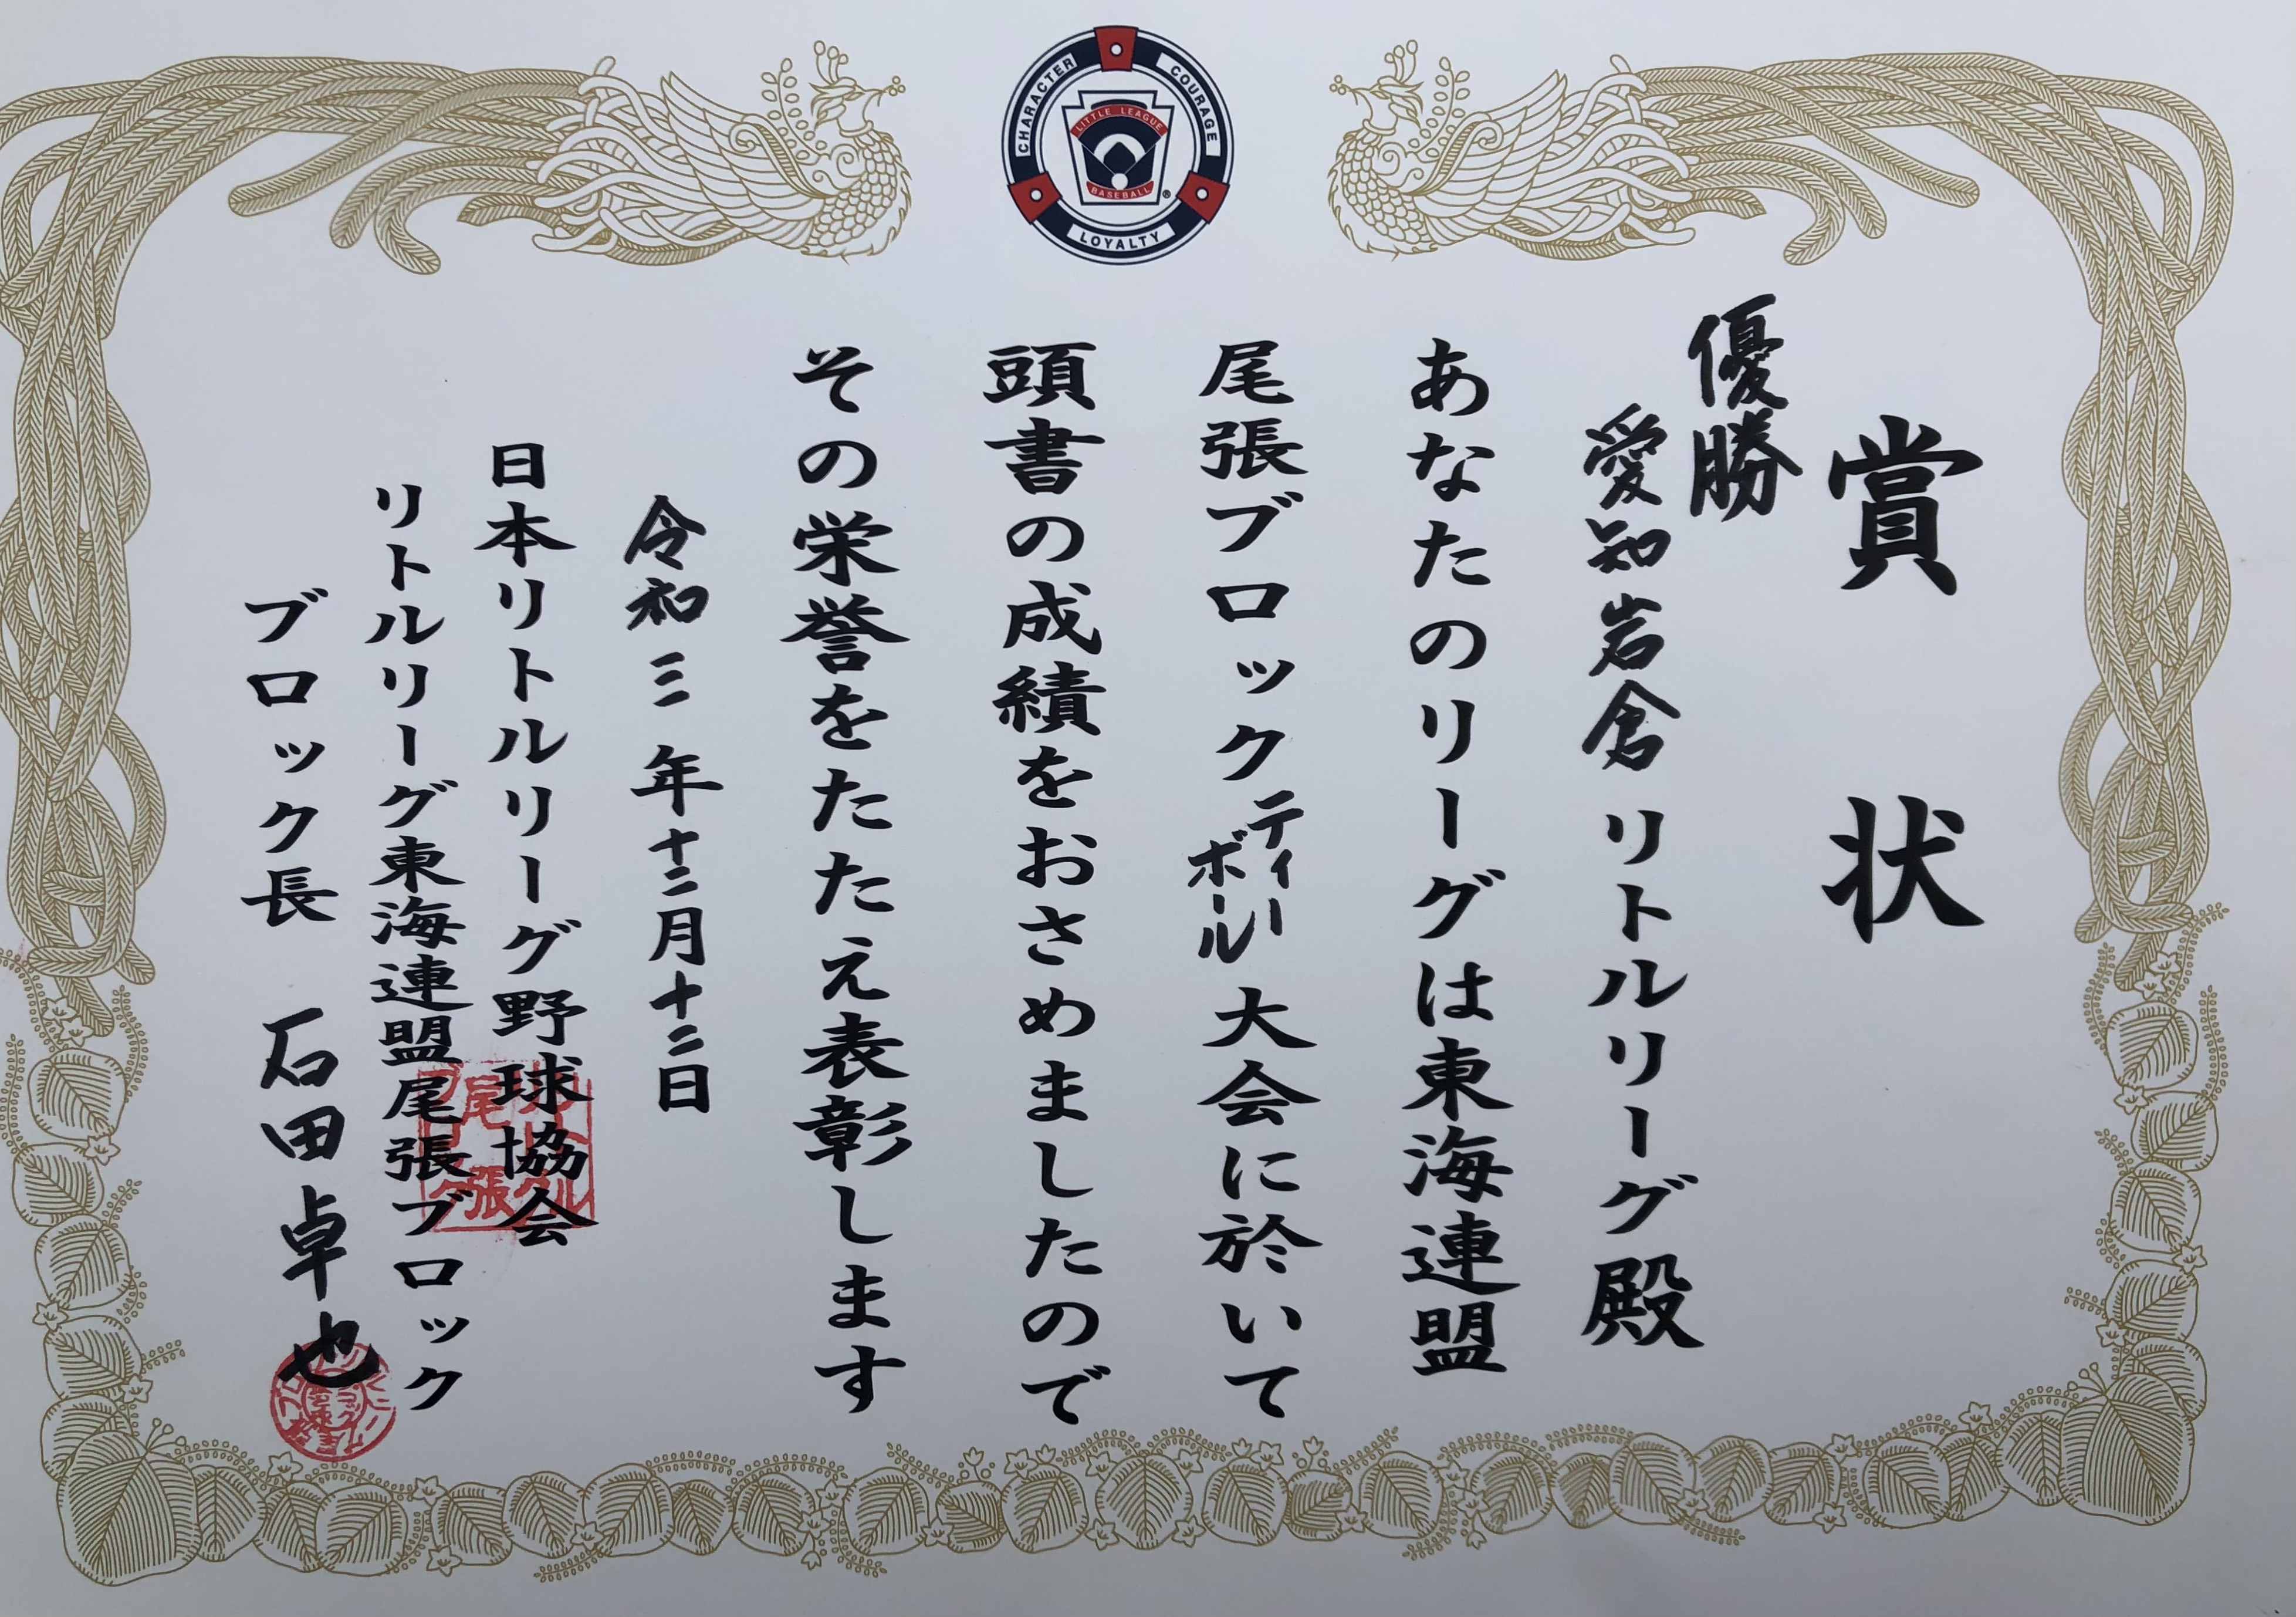 CHARACTER
COURAGE
LITTLE LEAGUE
BASEBALL
®
LOYALTY
賞状
優勝
愛知岩倉リトルリーグ殿
あなたのリーグは東海連盟
尾張ブロックティーボール大会に於いて
頭書の成績をおさめましたので
その栄誉をたたえ表彰します
令和三年十二月十二日
日本リトルリーグ野球協会
リトルリーグ東海連盟尾張ブロック
ブロック長 石田卓也